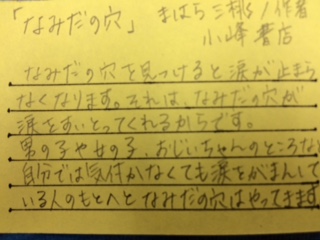 「なみだの穴」 まはら三桃/作者
小峰書店
なみだの穴を見つけると涙が止まら
なくなります。それは、なみだの穴が
涙をすいとってくれるからです。
男の子や女の子、おじいちゃんのところな
自分では気付かなくても涙をがまんして
いる人のもとへとなみだの穴はやってきます